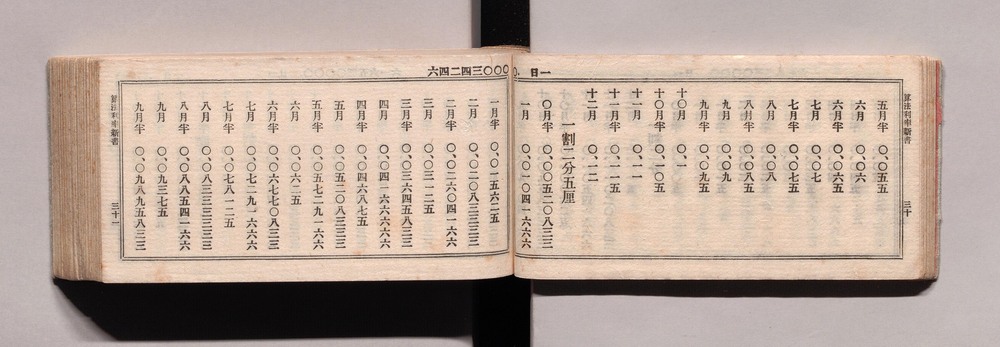 一日 〇、〇〇〇三四二四六
五月半 〇、〇五五
六月 〇、〇六
六月半 〇、〇六五
七月 〇、〇七
七月半 〇、〇七五
八月 〇、〇八
八月半 〇、〇八五
九月 〇、〇九
九月半 〇、〇九五
十〇月 〇、一
十〇月半 〇、一〇五
十一月 〇、一一
十一月半 〇、一一五
十二月 〇、一二
一割二分五厘
〇月半 〇、〇〇五二〇八三三
一月 〇、〇一〇四一六六六
三十
一月半 〇、〇一五六二五
二月 〇、〇二〇八三三三三
二月半 〇、〇二六〇四一六六
三月 〇、〇三一二五
三月半 〇、〇三六四五八三三
四月 〇、〇四一六六六六六
四月半 〇、〇四六八七五
五月 〇、〇五二〇八三三三
五月半 〇、〇五七二九一六六
六月 〇、〇六二五
六月半 〇、〇六七七〇八三三
七月 〇、〇七二九一六六六
七月半 〇、〇七八一二五
八月 〇、〇八三三三三三三
八月半 〇、〇八八五四一六六
九月 〇、〇九三七五
九月半 〇、〇九八九五八三三
三十一